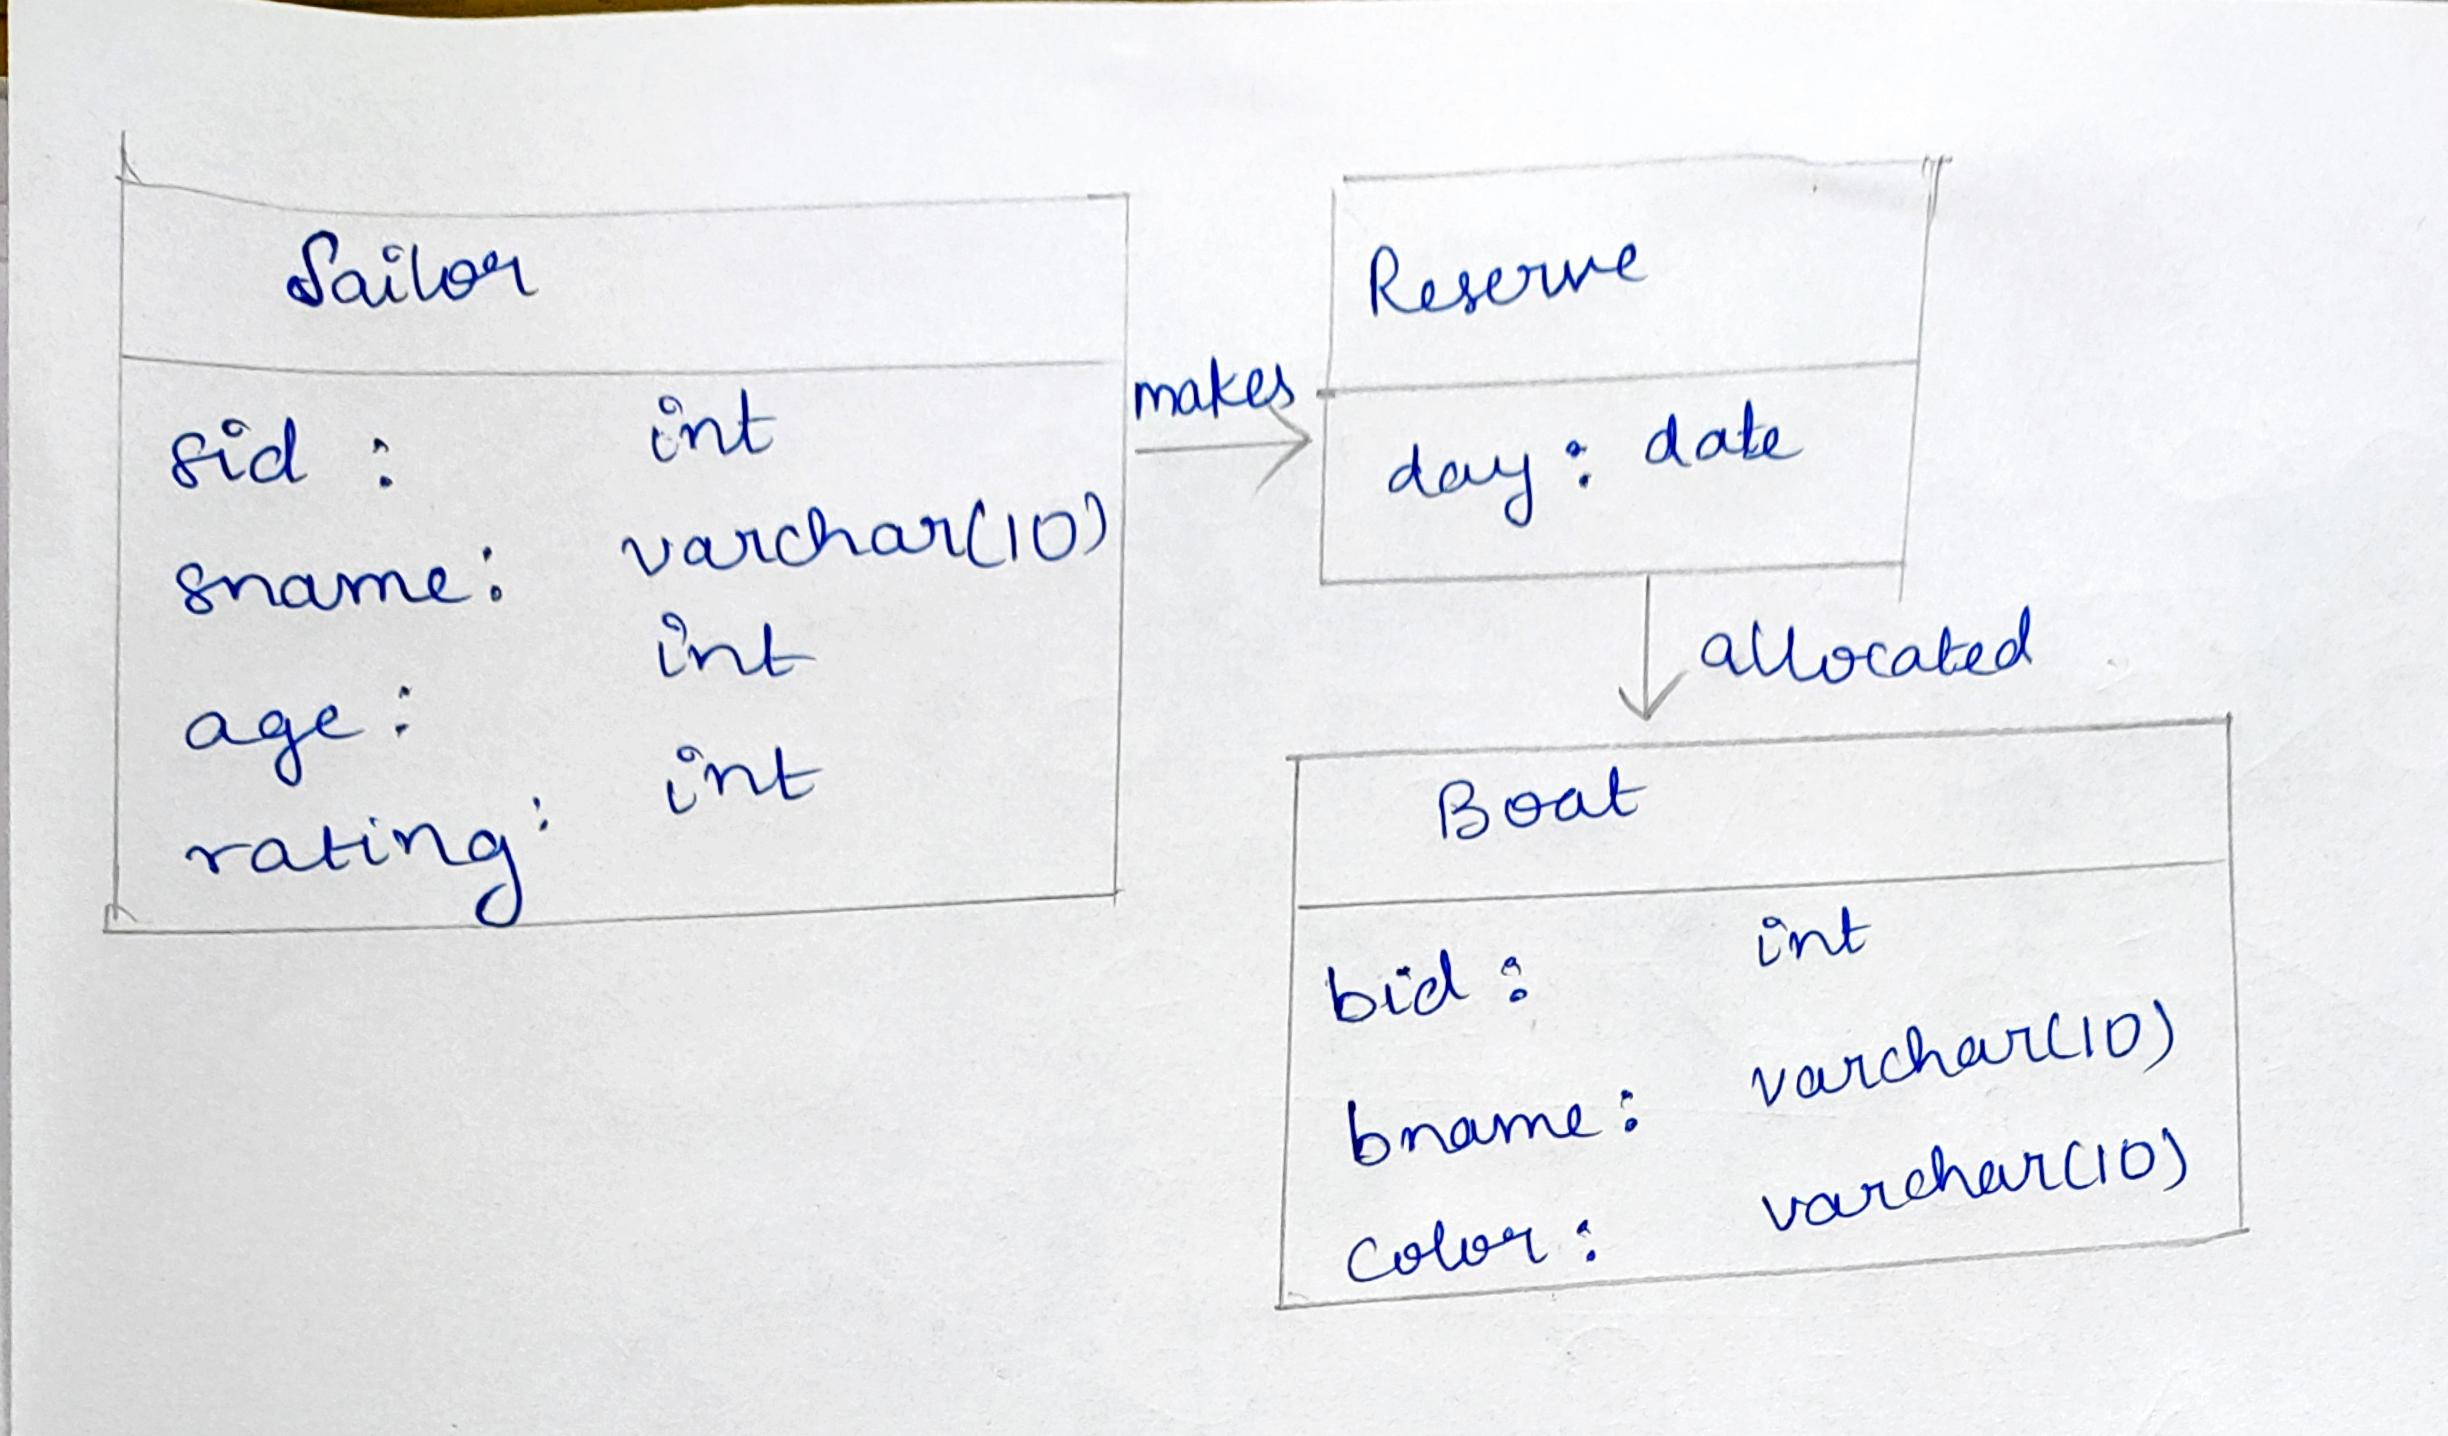 Sailor
sid : int
sname : varchar(10)
age : int
rating : int
makes
Reserve
day : date
allocated
Boat
bid : int
bname : varchar(10)
color : varchar(10)